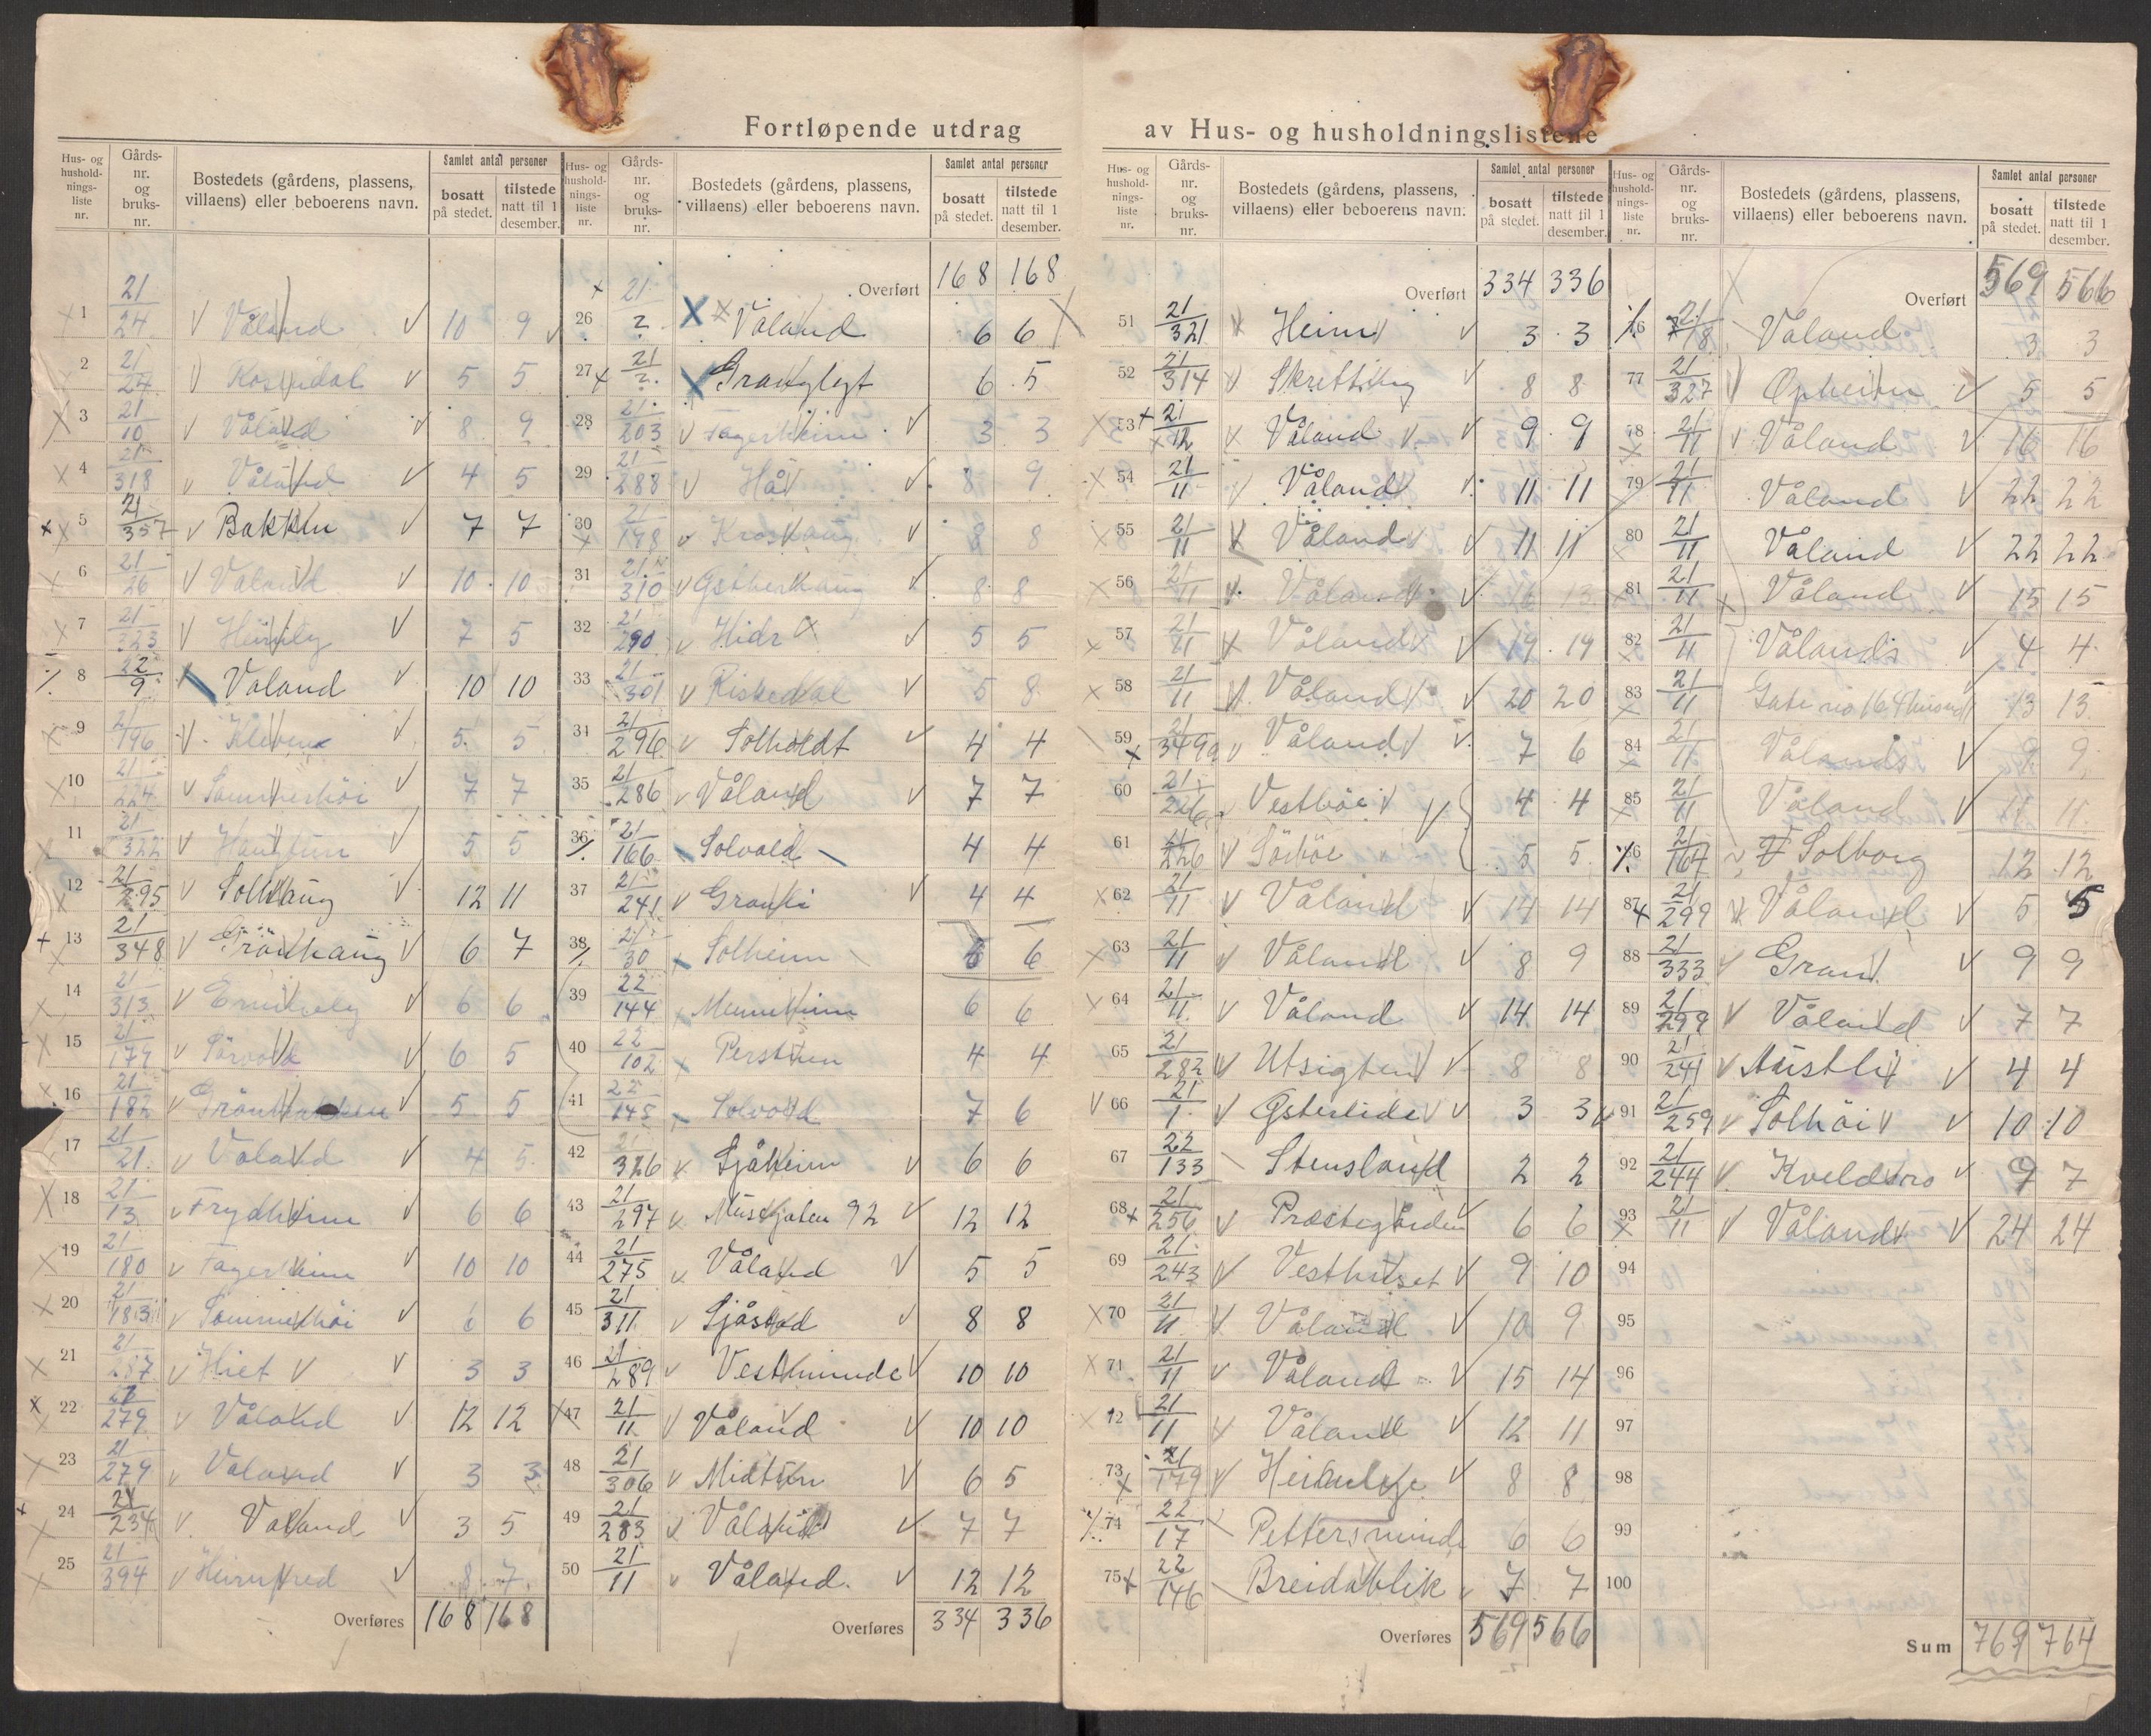 Fortløpende utdrag av Hus- og husholdningslistene
Hus- og husholdningsliste nr. Gårds-nr. og bruks-nr. Bostedets (gårdens, plassens, villaens) eller beboerens navn. Samlet antal personer bosatt på stedet. tilstede natt til 1 desember.
1 21/24 Våland 10 9
2 21/24 Rosendal 5 5
3 21/10 Våland 8 9
4 21/318 Våland 4 5
5 21/357 Bakken 7 7
6 21/26 Våland 10 10
7 21/323 Heimly 7 5
8 22/9 Våland 10 10
9 21/196 5 5
10 21/224 Sommerhöi 7 7
11 21/322 5 5
12 21/295 Solhaug 12 11
13 21/348 Grönhaug 6 7
14 21/313 6 6
15 21/179 6 5
16 21/182 5 5
17 21/21 Våland 4 5
18 21/13 Frydheim 6 6
19 21/180 Fagerheim 10 10
20 21/183 Sommerhöi 6 6
21 21/287 3 3
22 21/279 Våland 12 12
23 21/279 Våland 3 3
24 21/234 Våland 3 5
25 21/394 8 7
Overføres 168 168
Hus- og husholdningsliste nr. Gårds-nr. og bruks-nr. Bostedets (gårdens, plassens, villaens) eller beboerens navn. Samlet antal personer bosatt på stedet. tilstede natt til 1 desember.
Overført 168 168
26 21/? Våland 6 6
27 21/? 6 5
28 21/203 Fagerheim 3 3
29 21/288 Hå 8 9
30 21/198 8 8
31 21/310 8 8
32 21/290 Hidr 5 5
33 21/301 Riskedal 5 8
34 21/296 Solholdt 4 4
35 21/286 Våland 7 7
36 21/166 Solvold 4 4
37 21/241 4 4
38 21/30 Solheim 6 6
39 22/144 6 6
40 22/102 4 4
41 22/145 Solvold 7 6
42 21/326 Sjåheim 6 6
43 21/297 Musegaten 92 12 12
44 21/275 Våland 5 5
45 21/311 Sjåstad 8 8
46 21/289 Vestminde 10 10
47 21/11 Våland 10 10
48 21/306 Midtun 6 5
49 21/283 Våland 7 7
50 21/11 Våland 12 12
Overføres 334 336
Hus- og husholdningsliste nr. Gårds-nr. og bruks-nr. Bostedets (gårdens, plassens, villaens) eller beboerens navn. Samlet antal personer bosatt på stedet. tilstede natt til 1 desember.
Overført 334 336
51 21/321 Heim 3 3
52 21/314 8 8
53 21/12 Våland 9 9
54 21/11 Våland 11 11
55 21/11 Våland 11 11
56 21/11 Våland 16 13
57 21/11 Våland 19 19
58 21/11 Våland 20 20
59 21/349 Våland 7 6
60 21/226 Vesthöi 4 4
61 21/226 5 5
62 21/11 Våland 14 14
63 21/11 Våland 8 9
64 21/11 Våland 14 14
65 21/282 Utsigten 8 8
66 21/1 Østerlide 3 3
67 22/133 Stensland 2 2
68 21/256 Præstegården 6 6
69 21/243 Vesthuset 9 10
70 21/11 Våland 10 9
71 21/11 Våland 15 14
72 21/11 Våland 12 11
73 21/179 8 8
74 22/17 Pettersminde 6 6
75 22/146 Breidablik 7 7
Overføres 569 566
Hus- og husholdningsliste nr. Gårds-nr. og bruks-nr. Bostedets (gårdens, plassens, villaens) eller beboerens navn. Samlet antal personer bosatt på stedet. tilstede natt til 1 desember.
Overført 569 566
76 21/18 Våland 3 3
77 21/327 Opheim 5 5
78 21/11 Våland 16 16
79 21/11 Våland 22 22
80 21/11 Våland 22 22
81 21/11 Våland 15 15
82 21/11 Vålands 4 4
83 21/11 13 13
84 21/11 Vålands 9 9
85 21/11 Våland 11 11
86 21/167 Solborg 12 12
87 21/299 Våland 5 5
88 21/333 Gran 9 9
89 21/299 Våland 7 7
90 21/241 Austli 4 4
91 21/259 Solhöi 10 10
92 21/244 Kveldsro 9 7
93 21/11 Våland 24 24
94
95
96
97
98
99
100
Sum 769 764